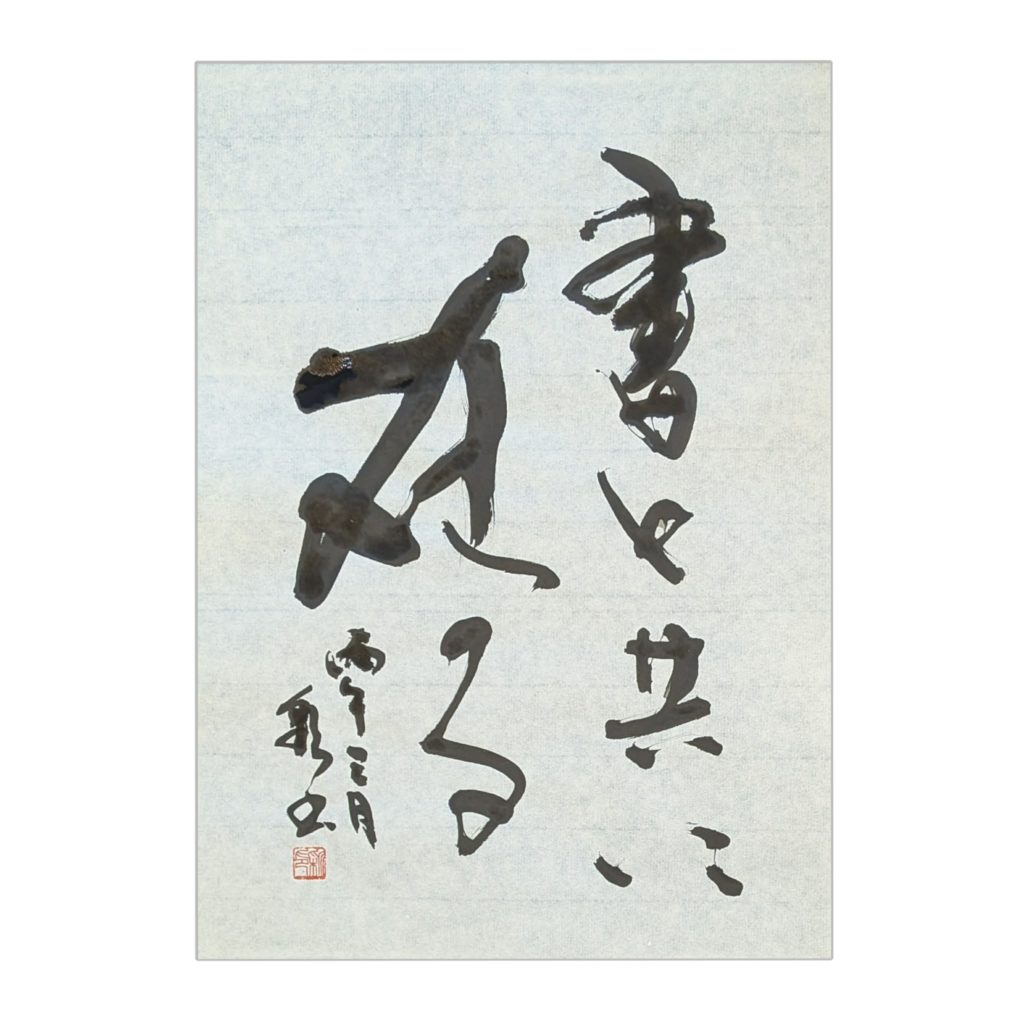 書と共に
在る
丙午三月
書